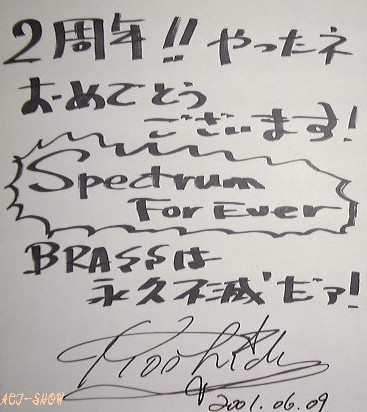 2周年!!やったネ
おめでとう
ございます!
Spectrum
For Ever
BRASSは
永久不滅だァ!
2001.06.09
ACJ-SHOW